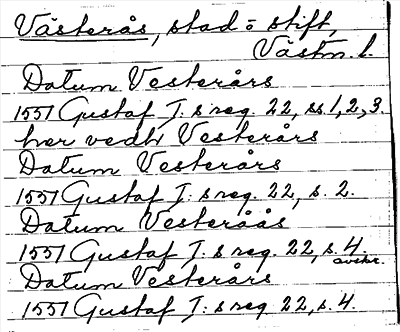 Västerås, stad o stift,
Västm. l.
Datum Vesterårs
1551 Gustaf I: s reg. 22, ss 1, 2, 3.
her vedh Vesterårs
Datum Vesterårs
1551 Gustaf I: s reg. 22, s. 2.
Datum Vesteråås
1551 Gustaf I: s reg. 22, s. 4.
avskr.
Datum Vesterårs
1551 Gustaf I: s reg. 22, s. 4.